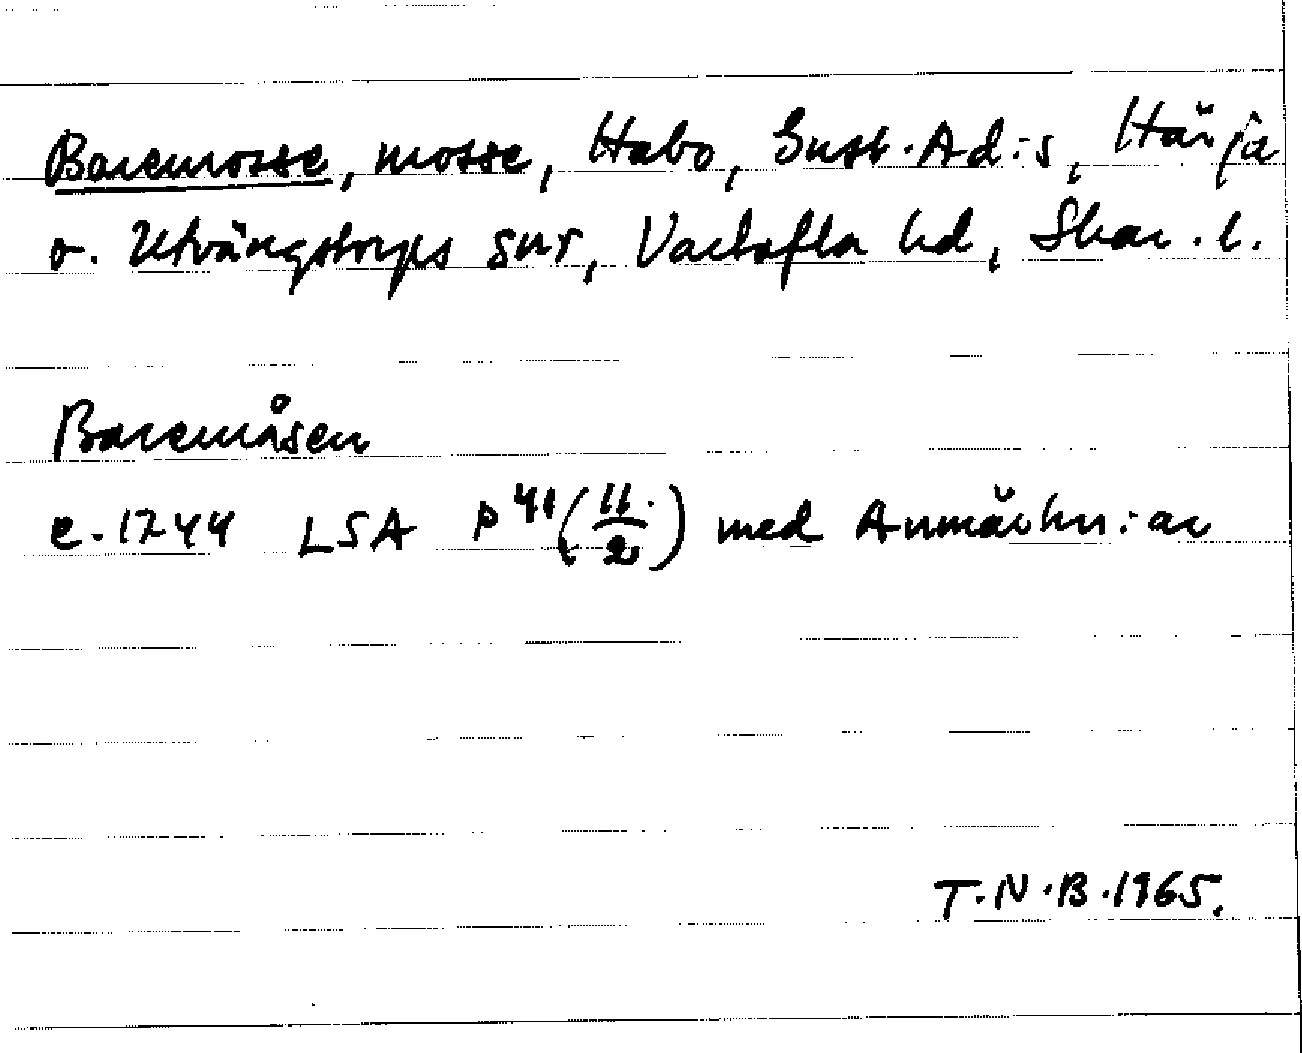 Baremosse, mosse, Habo, Gust. Ad:s, Härja
o. Utvängstorps snr, Vartofta hd, Skar. l.
Baremåsen
c. 1744 LSA P 41 (11./2) med Anmärkn:ar
T.N.B. 1965.